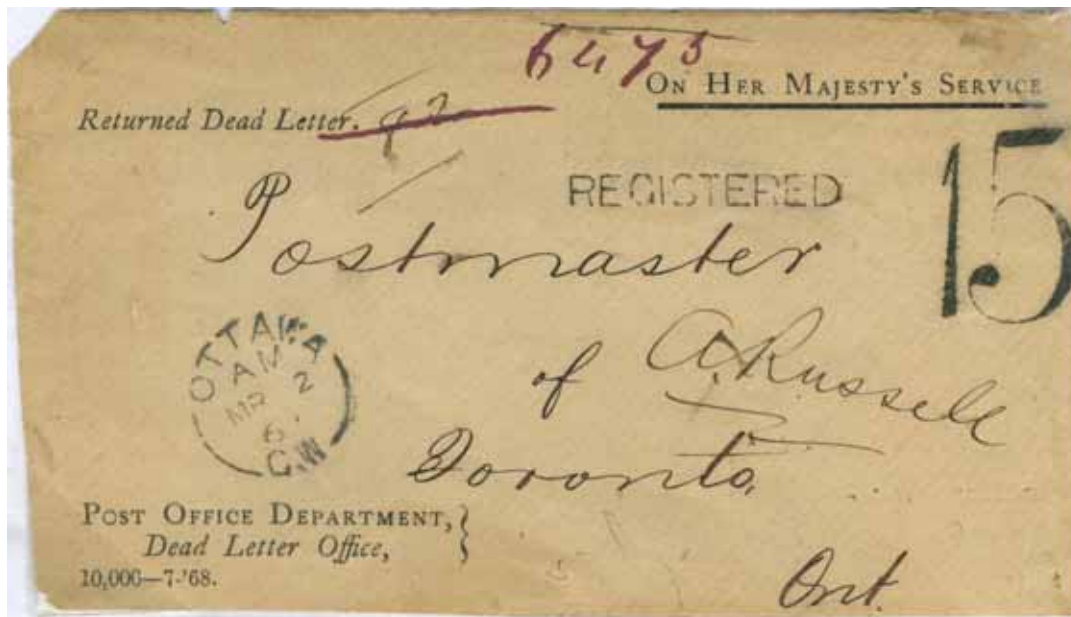 6475
ON HER MAJESTY'S SERVICE
Returned Dead Letter. 92
REGISTERED
15
Postmaster
of A. Russell
Toronto
Ont.
OTTAWA
AM
MR 2
6
C.W
POST OFFICE DEPARTMENT,
Dead Letter Office,
10,000—7-'68.